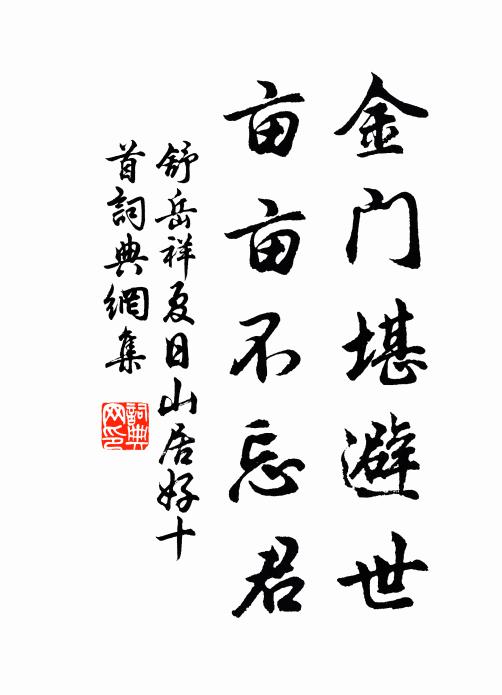 金门堪避世
亩亩不忘君
舒岳祥夏日山居好十
首詞典網集
詞典网印